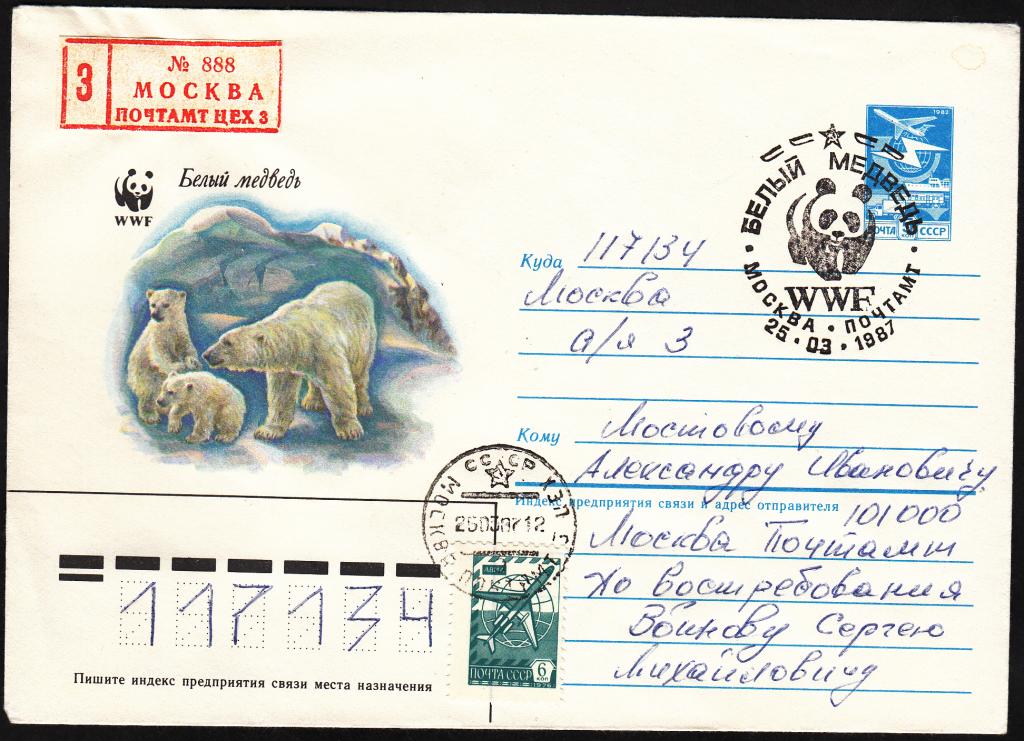 З
№ 888
МОСКВА
ПОЧТАМТ ЦЕХ 3
WWF
Белый медведь
1982
ПОЧТА СССР
БЕЛЫЙ МЕДВЕДЬ
WWF
МОСКВА • ПОЧТАМТ
25 • 03 • 1987
Куда 117134
Москва
а/я 3
Кому Мостовому
Александру Ивановичу
Индекс предприятия связи и адрес отправителя
101000
Москва Почтамт
До востребования
Воинову Сергею
Михайловичу
СССР
МОСКВА
26038712
АВИА
6 коп
ПОЧТА СССР
1976
117134
Пишите индекс предприятия связи места назначения